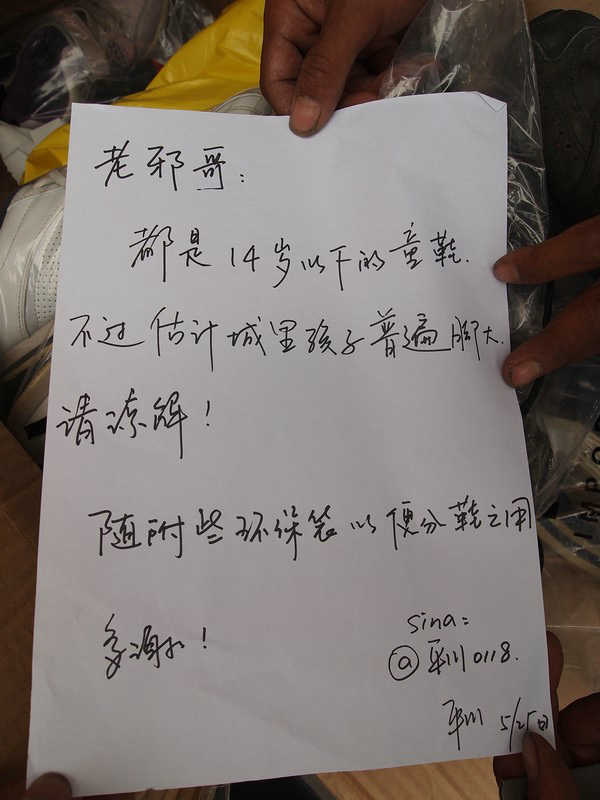 老邪哥：
都是14岁以下的童鞋.
不过估计城里孩子普遍脚大.
请谅解！
随附些环保袋以便分鞋之用
多谢！
sina:
@平川0118.
平川 5/25日
IMPO